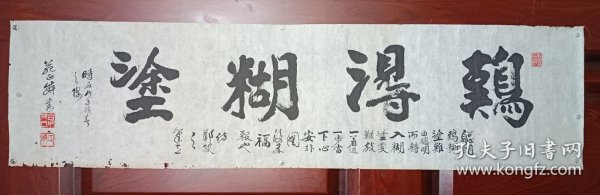 難淂糊塗
聰明
難糊
塗難
由聰明
而轉
入糊
塗更
難放
一着退
一步當
下心
安非
圖
後來
福
報也
仿
鄭燮
之
時在
孔夫子旧书网